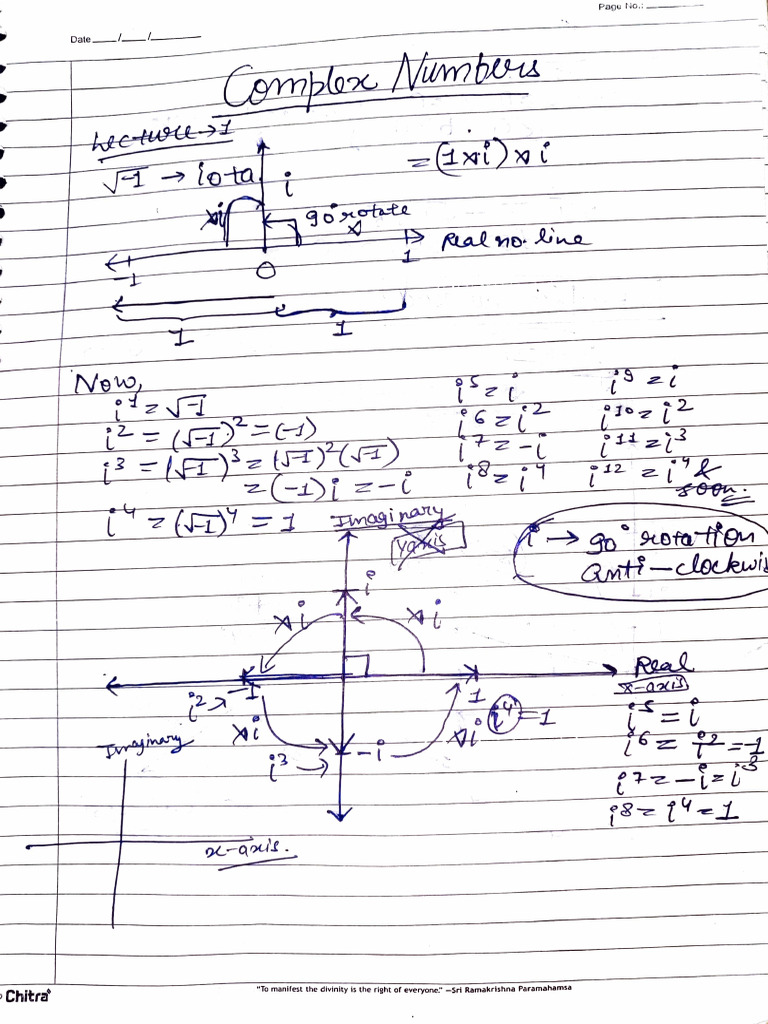 Page No.:
Date / /
Complex Numbers
Lecture → 1
√-1 → iota
i
= (1 × i) × i
×i
90° rotate
Real no. line
-1
0
1
1
1
Now,
i¹ = √-1
i² = (√-1)² = (-1)
i³ = (√-1)³ = (√-1)² (√-1)
= (-1) i = -i
i⁴ = (√-1)⁴ = 1
i⁵ = i
i⁶ = i²
i⁷ = -i
i⁸ = i⁴
i⁹ = i
i¹⁰ = i²
i¹¹ = i³
i¹² = i⁴ &
soon.
Imaginary
Yaxis
i → 90° rotation
anti-clockwis
i
×i
×i
Real
x-axis
i² → -1
1
i⁴ = 1
×i
×i
i³ → -i
i⁵ = i
i⁶ = i² = -1
i⁷ = -i = i³
i⁸ = i⁴ = 1
Imaginary
x-axis.
Chitra
"To manifest the divinity is the right of everyone." —Sri Ramakrishna Paramahamsa